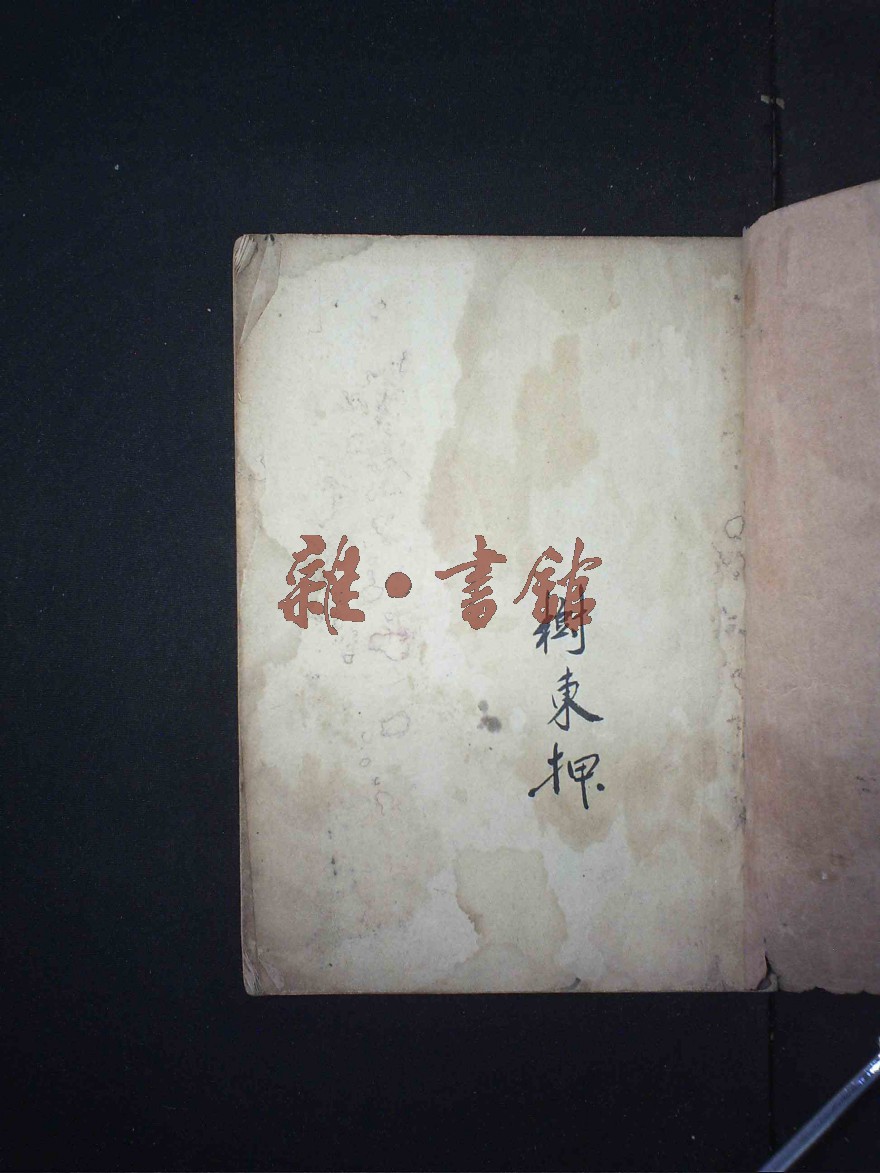 雜·書館
樹東押